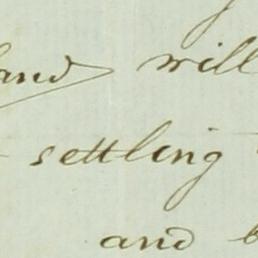 and will
settling
and